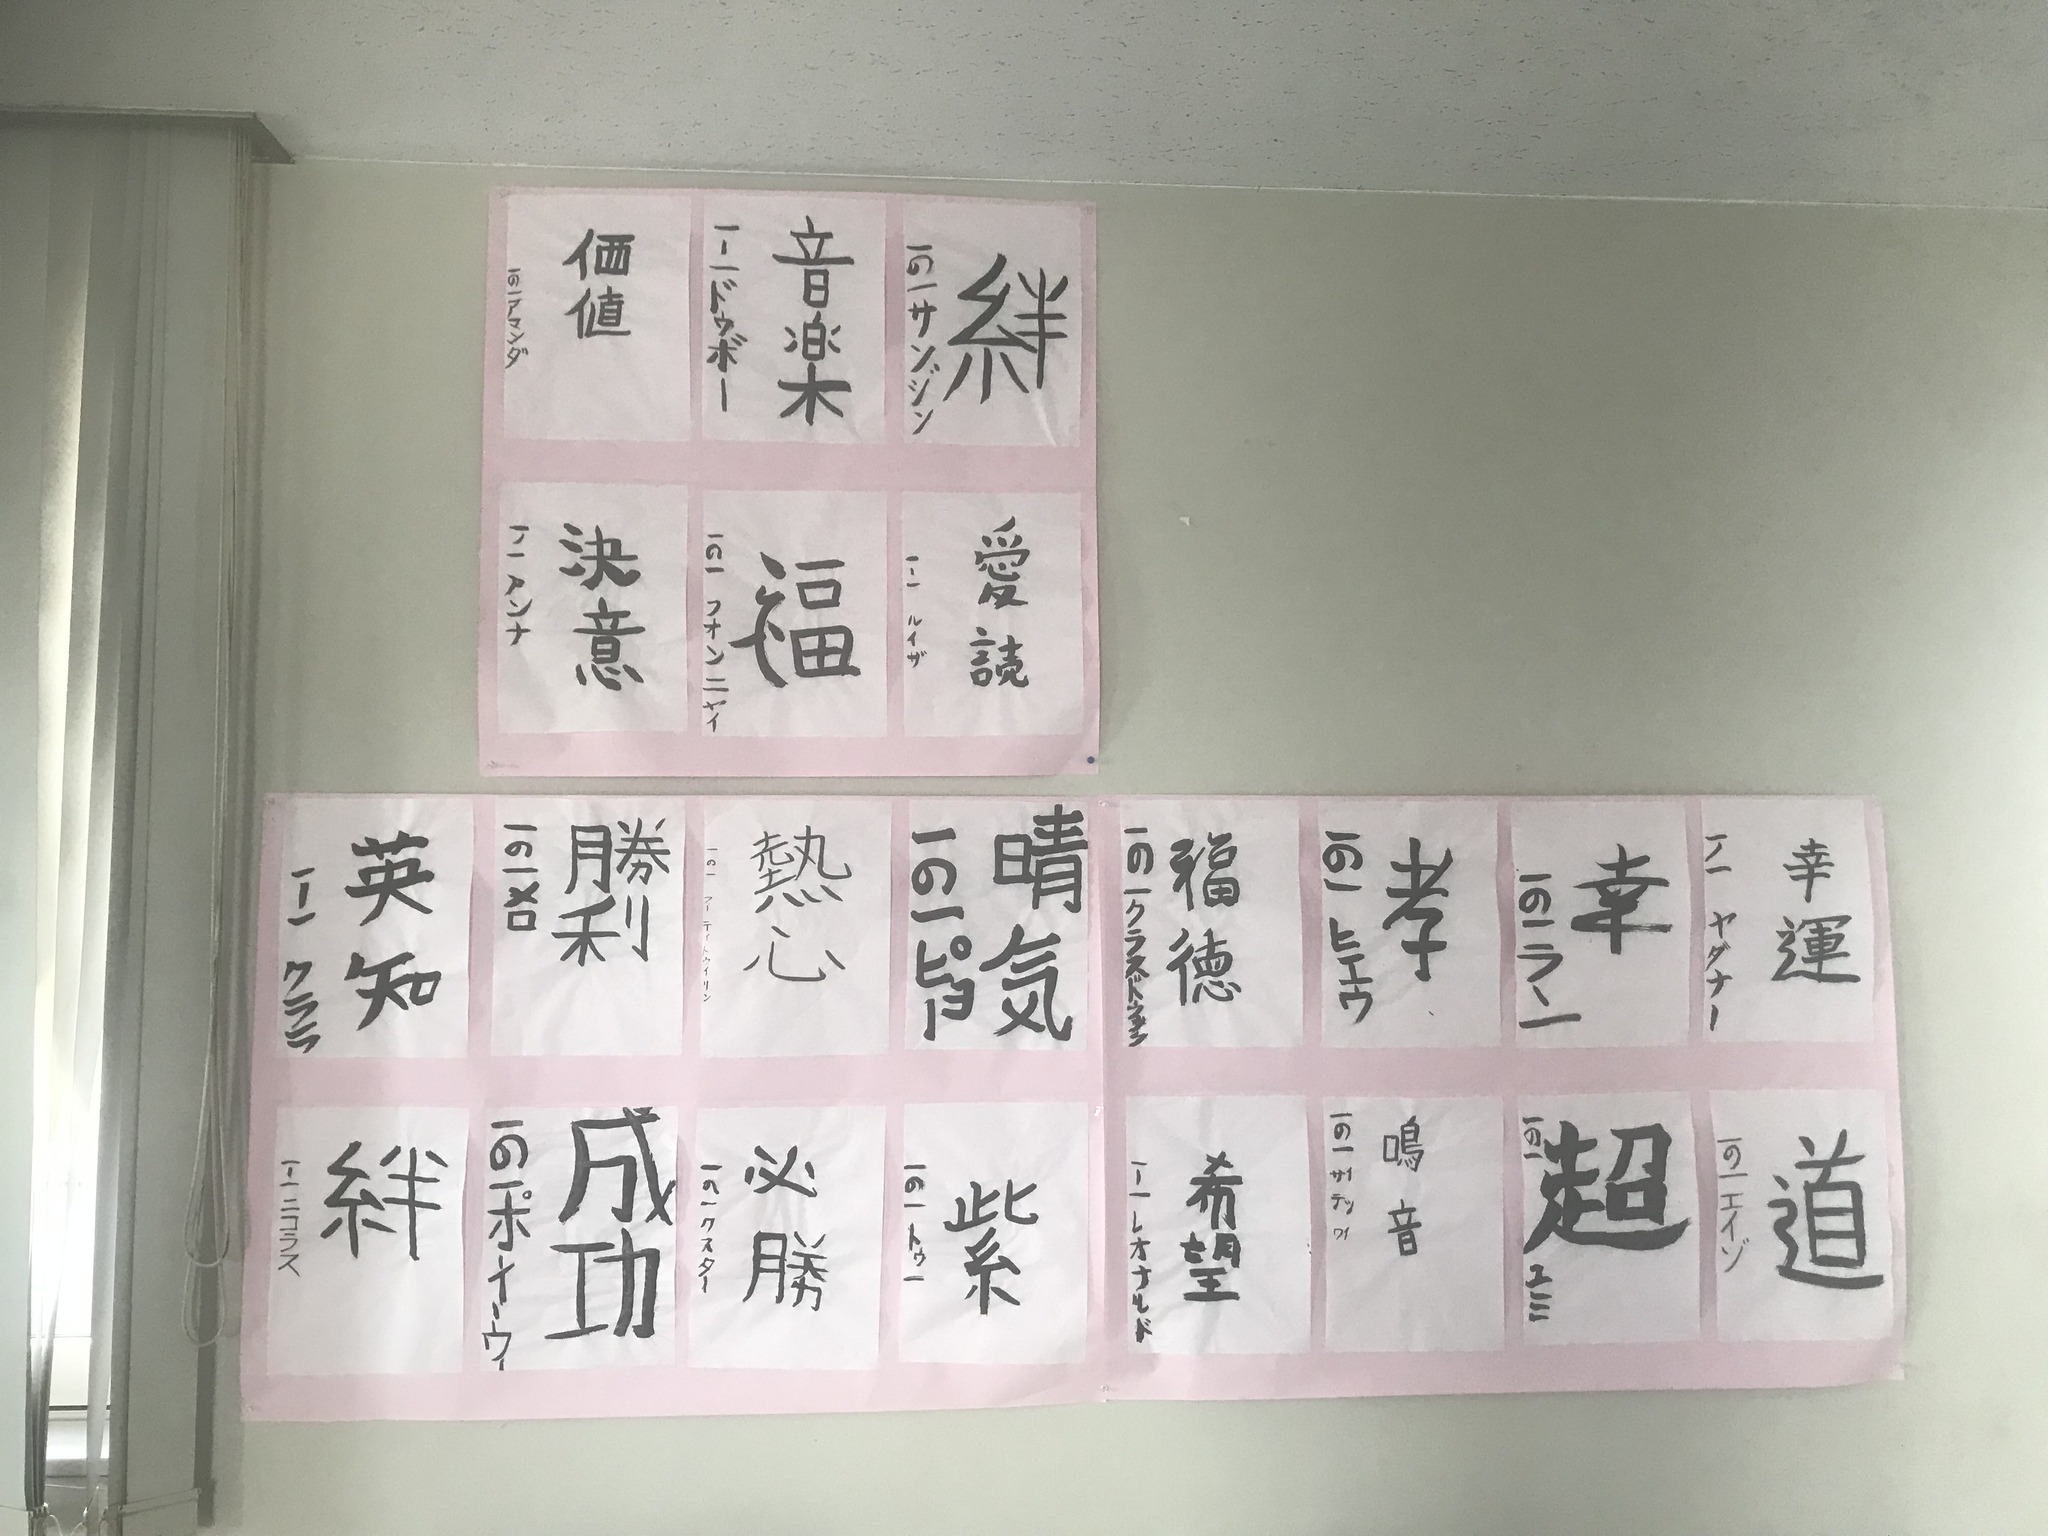 絆
一の一サンジン
音楽
一ー一ドゥボー
価値
一の一アマンダ
愛読
一ー一 ルイザ
福
一の一 フォンニャイ
決意
一ノ一 アンナ
幸運
一ノ一 ヤダナー
幸
一の一ラン
孝
一の一 ヒエウ
福徳
晴気
一の一ピョー
熱心
勝利
一の一メロ
英知
一ー一 クララ
道
一の一エイゾ
超
一の一 ユミ
鳴音
希望
一ー一レオナルド
紫
一の一トゥー
必勝
一の一クスター
成功
一の一ポーイーウィ
絆
一ー一ニコラス